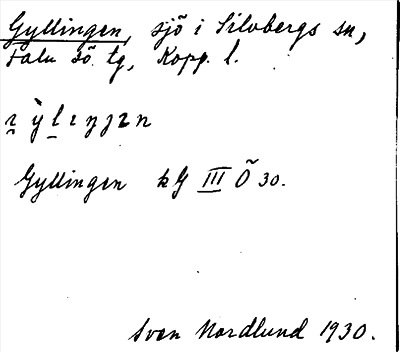 Gyllingen, sjö i Silvbergs sn,
Falu sö. tg, Kopp. l.
Gyllingen kG III Ö 30.
Sven Nordlund 1930.